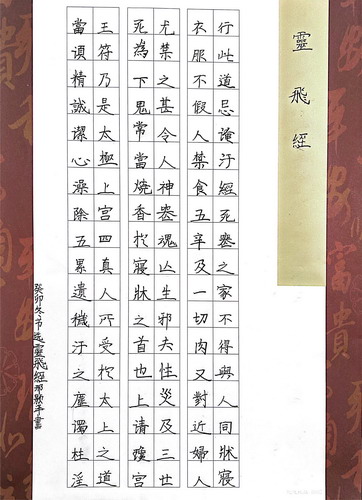 靈飛經
行此道忌淹汙經死喪之家不得與人同牀寢
衣服不假人禁食五辛及一切肉又對近婦人
尤禁之甚令人神喪魂亡生邪失性災及三世
死為下鬼常當燒香於寢牀之首也上清瓊宮
玉符乃是太極上宮四真人所受於太上之道
當須精誠潔心澡除五累遺穢汙之塵濁杜淫
癸卯冬节选靈飛經那歌手書